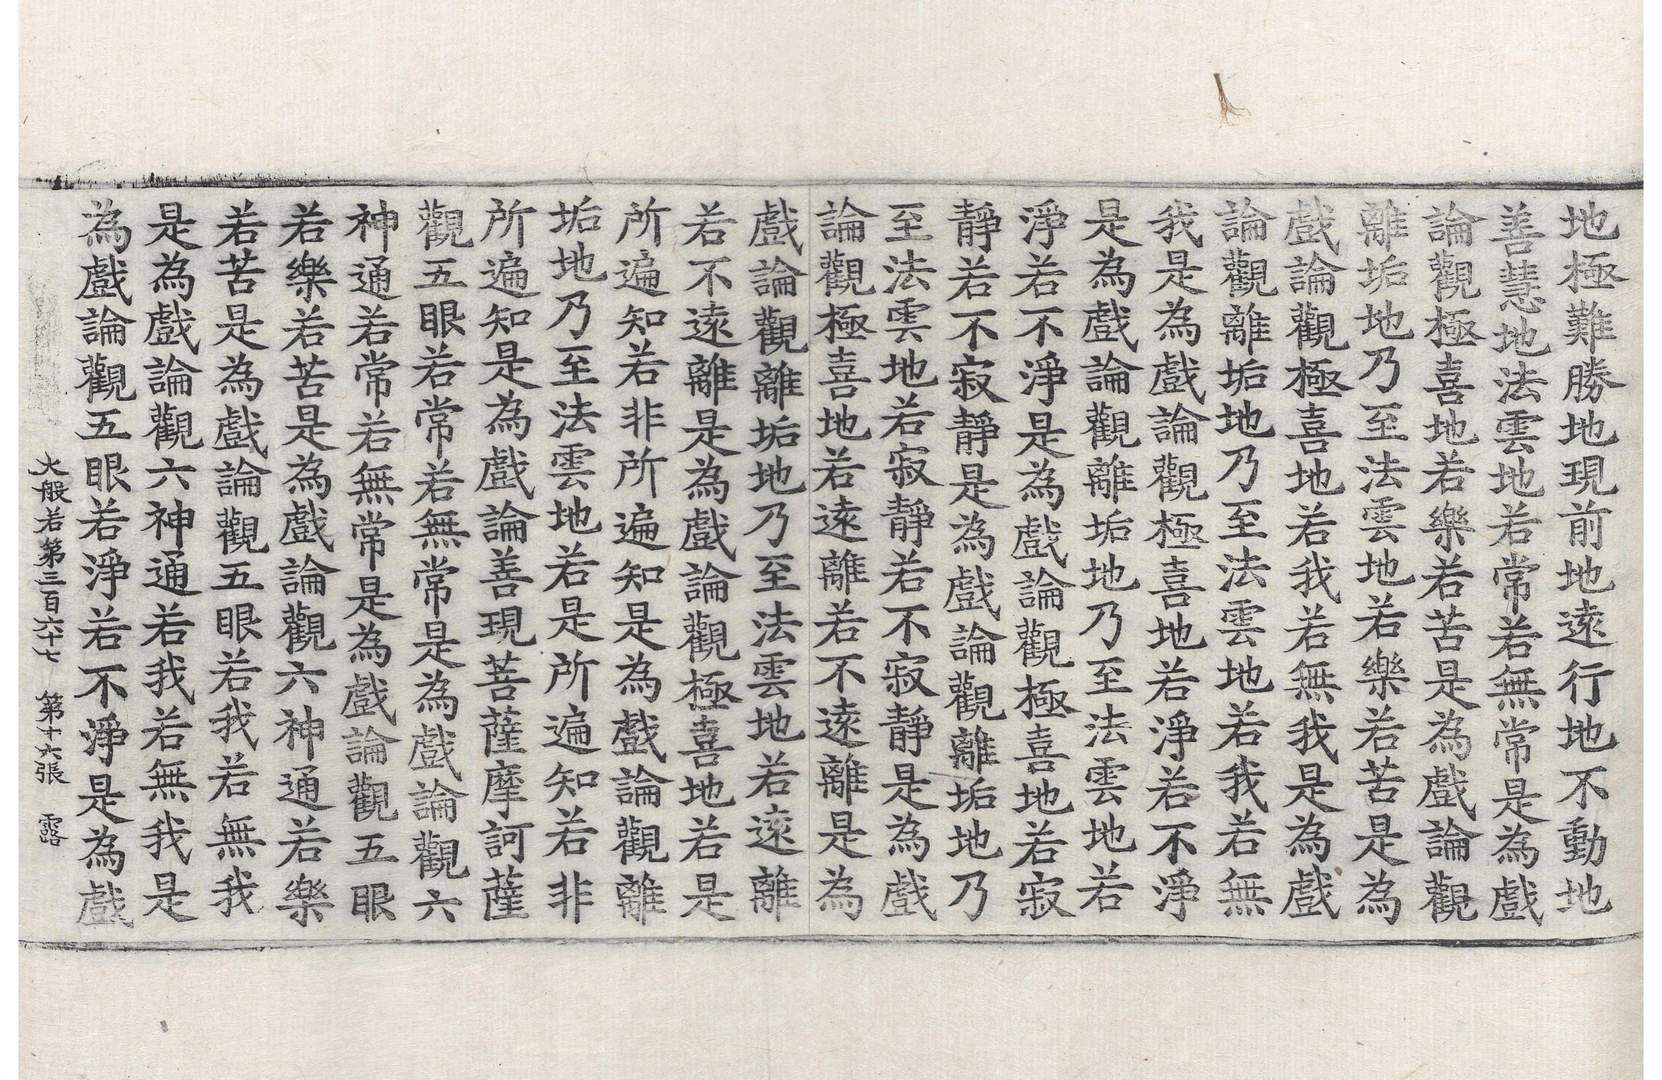 地極難勝地現前地遠行地不動地
善慧地法雲地若常若無常是為戲
論觀極喜地若樂若苦是為戲論觀
離垢地乃至法雲地若樂若苦是為
戲論觀極喜地若我若無我是為戲
論觀離垢地乃至法雲地若我若無
我是為戲論觀極喜地若淨若不淨
是為戲論觀離垢地乃至法雲地若
淨若不淨是為戲論觀極喜地若寂
靜若不寂靜是為戲論觀離垢地乃
至法雲地若寂靜若不寂靜是為戲
論觀極喜地若遠離若不遠離是為
戲論觀離垢地乃至法雲地若遠離
若不遠離是為戲論觀極喜地若是
所遍知若非所遍知是為戲論觀離
垢地乃至法雲地若是所遍知若非
所遍知是為戲論善現菩薩摩訶薩
觀五眼若常若無常是為戲論觀六
神通若常若無常是為戲論觀五眼
若樂若苦是為戲論觀六神通若樂
若苦是為戲論觀五眼若我若無我
是為戲論觀六神通若我若無我是
為戲論觀五眼若淨若不淨是為戲
大般若第三百六十七 第十六張 露